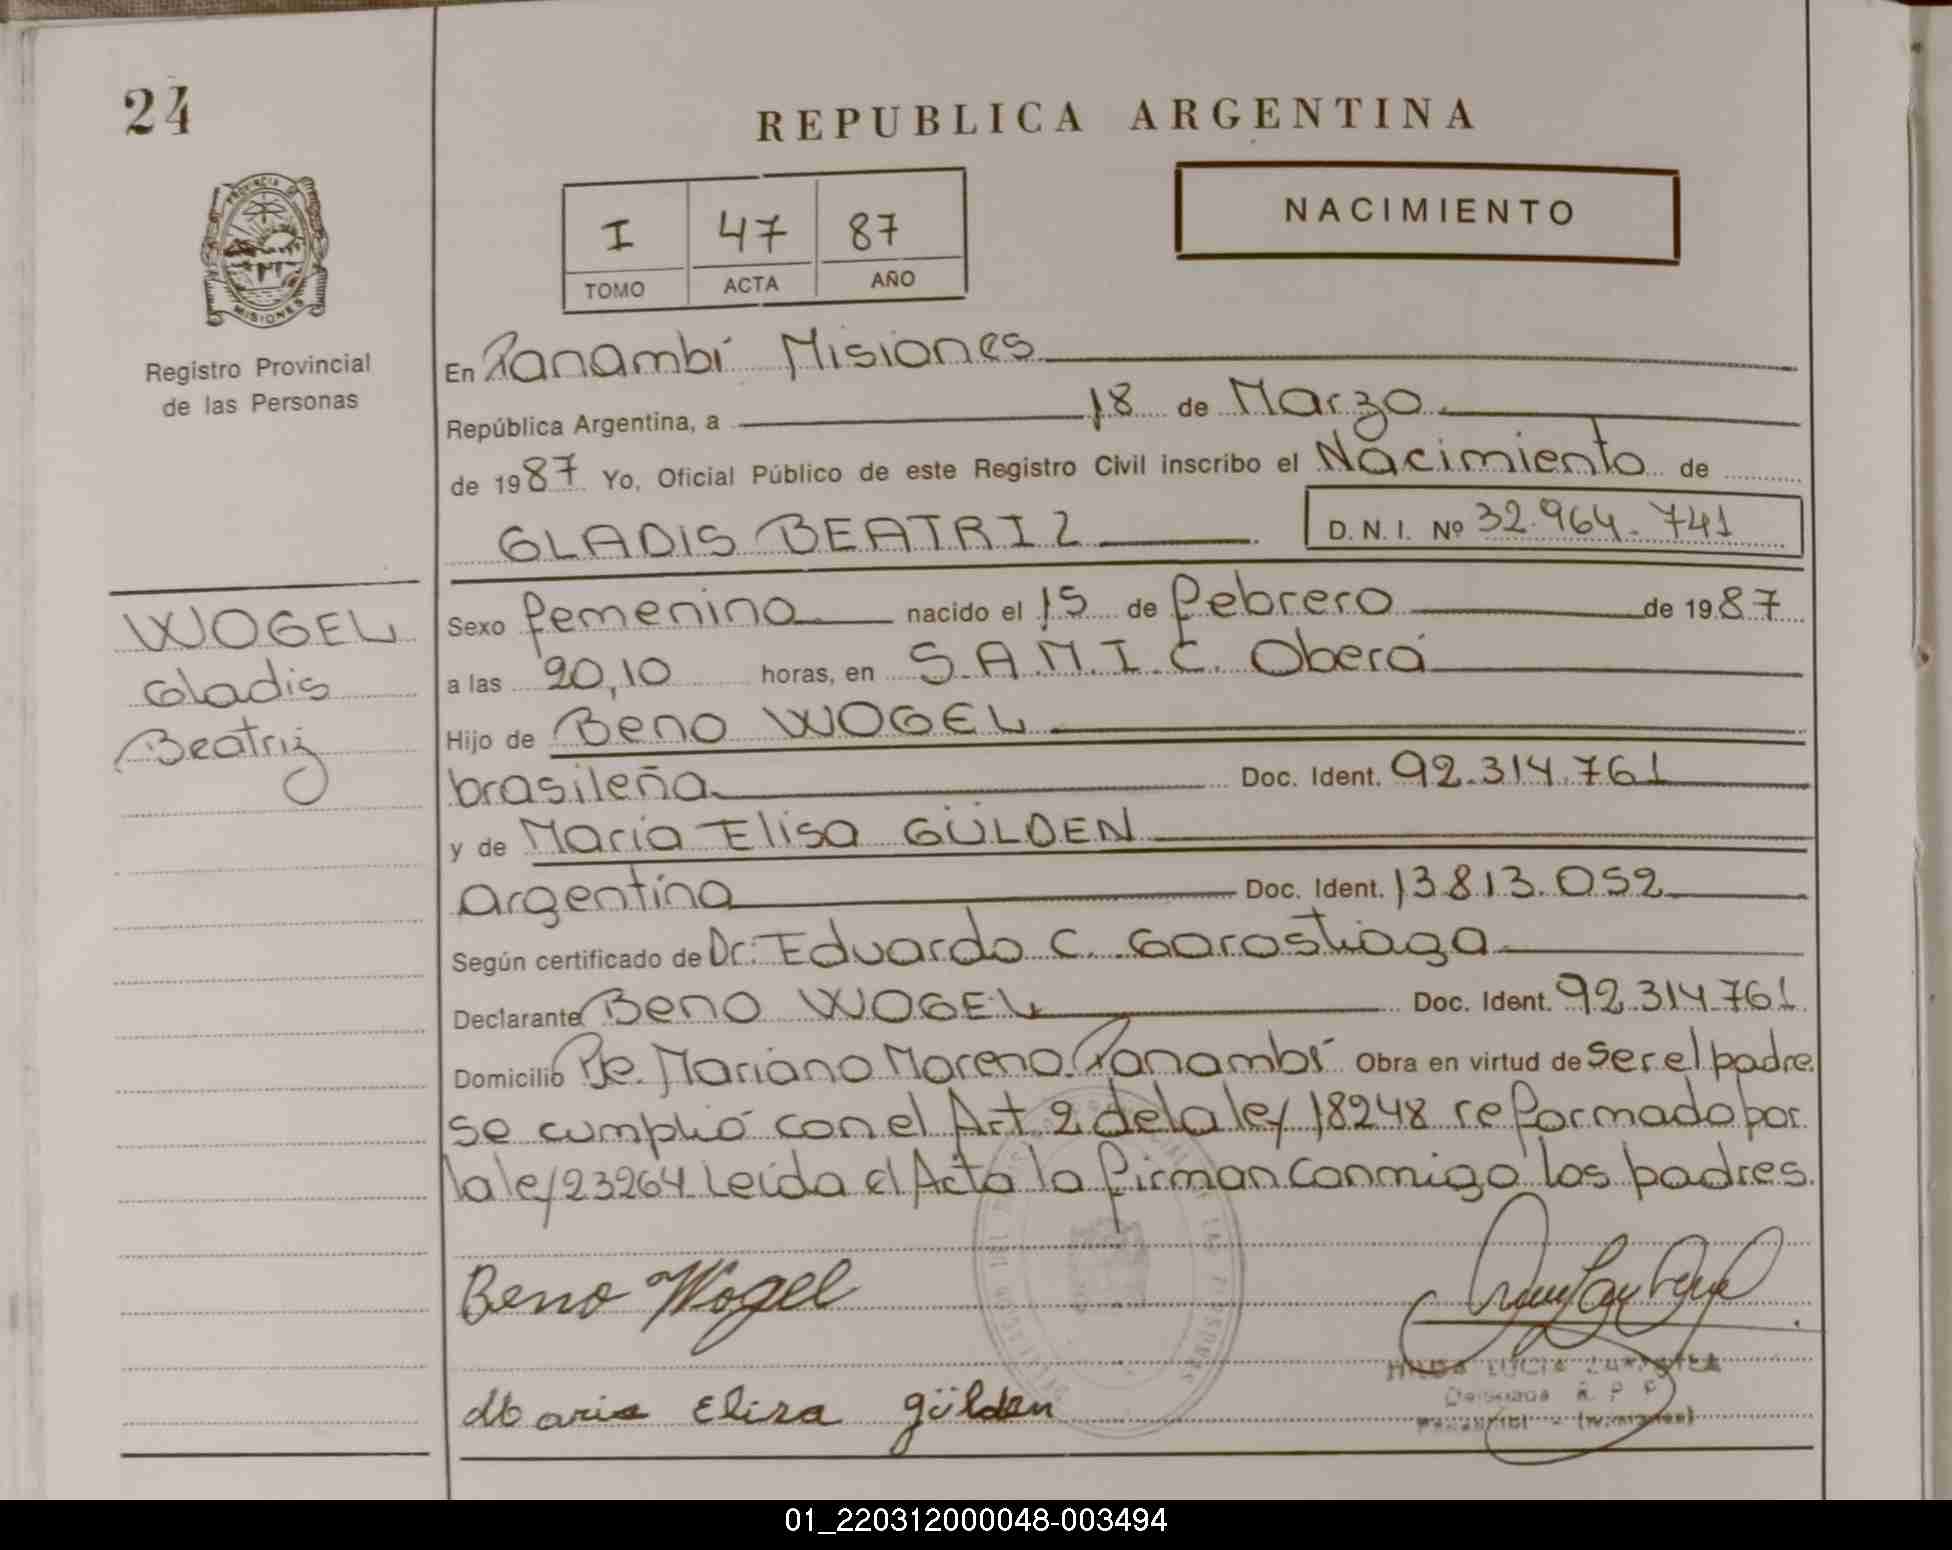 24
REPUBLICA ARGENTINA
PROVINCIA DE
MISIONES
I 47 87
TOMO ACTA AÑO
NACIMIENTO
Registro Provincial
de las Personas
En Panambí Misiones
República Argentina, a 18 de Marzo
de 1987 Yo, Oficial Público de este Registro Civil inscribo el Nacimiento de
GLADIS BEATRIZ D.N.I. Nº 32.964.741
WOGEL
Gladis
Beatriz
Sexo femenino nacido el 15 de febrero de 1987
a las 20,10 horas, en S.A.M.I.C. Oberá
Hijo de Beno WOGEL
brasileña Doc. Ident. 92.314.761
y de María Elisa GÜLDEN
argentina Doc. Ident. 13.813.052
Según certificado de Dr. Eduardo C. Gorostiaga
Declarante Beno WOGEL Doc. Ident. 92.314.761
Domicilio Pje. Mariano Moreno Panambí Obra en virtud de ser el padre
se cumplió con el Art. 2 de la ley 18248 reformado por
la ley 23264 Leída el Acta la firman conmigo los padres.
Beno Wogel
Maria Eliza gülden
LUCIA
01_220312000048-003494